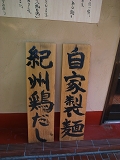 自家製麺
紀州鶏だし